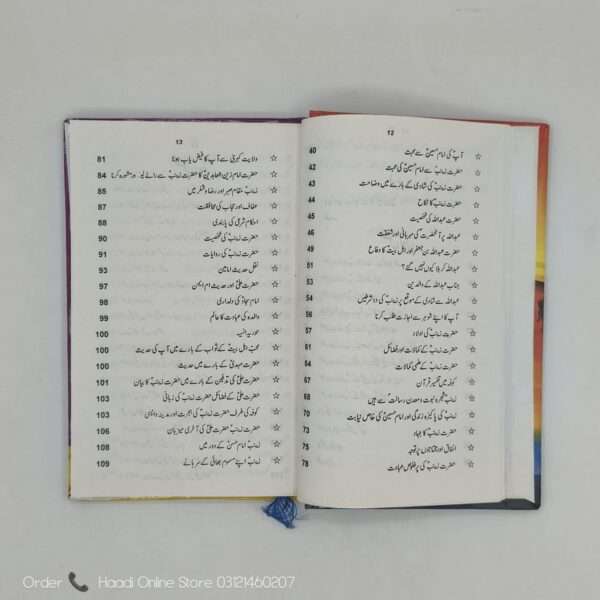 12
☆ آپؑ کی امام حسینؑ سے محبت 40
☆ حضرت زینبؑ سے امام حسینؑ کی محبت 42
☆ حضرت زینبؑ کی شادی کے بارے میں وضاحت 43
☆ حضرت زینبؑ کا نکاح 44
☆ حضرت عبداللہ کی شخصیت 45
☆ عبداللہ پر آنحضرتؐ کی مہربانی اور شفقت 46
☆ حضرت عبداللہ بن جعفرؑ اور اہل بیتؑ کا دفاع 49
☆ عبداللہ کربلا کیوں نہیں گئے؟ 51
☆ جناب عبداللہ کے والدین 53
☆ عبداللہ سے شادی کے موقع پر زینبؑ کی دو شرطیں 54
☆ آپؑ کا اپنے شوہر سے اجازت طلب کرنا 56
☆ حضرت زینبؑ کی اولاد 57
☆ حضرت زینبؑ کے کمالات اور فضائل 61
☆ حضرت زینبؑ کے علمی کمالات 64
☆ کوفہ میں تفسیر قرآن 67
☆ زینبؑ شجرہ نبوت و معدن رسالت سے ہیں 68
☆ زینبؑ کی پاکیزہ زندگی اور امام حسینؑ کی خاص نیابت 70
☆ حضرت زینبؑ کا جہاد 73
☆ انفاق اور محتاجوں پر توجہ 75
☆ حضرت زینبؑ کی پرخلوص عبادت 78
13
☆ ولایت کبریٰ سے آپؑ کا فیض یاب ہونا 81
☆ حضرت امام زین العابدینؑ کا حضرت زینبؑ سے رائے لینا اور مشورہ کرنا 84
☆ زینبؑ مقام صبر اور رضا و شکر میں 85
☆ عفاف اور حجاب کی محافظت 87
☆ احکام شرعی کی پابندی 88
☆ حضرت زینبؑ کی شخصیت 90
☆ حضرت زینبؑ کی روایات 91
☆ نقل حدیث امامین 93
☆ حضرت علیؑ اور حدیث ام ایمن 97
☆ امام سجادؑ کی دلداری 98
☆ والدہ کی عبادت کا عالم 99
☆ حوریہ انسیہ 100
☆ محبّ اہل بیتؑ کے ثواب کے بارے میں آپؑ کی حدیث 100
☆ حضرت مہدیؑ کے بارے میں حدیث 100
☆ حضرت علیؑ کی تدفین کے بارے میں حضرت زینبؑ کا بیان 101
☆ حضرت علیؑ کے فضائل حضرت زینبؑ کی زبانی 103
☆ کوفہ کی طرف حضرت زینبؑ کی ہجرت اور مدینہ واپسی 103
☆ حضرت زینبؑ حضرت علیؑ کی آخری میزبان 106
☆ زینبؑ امام حسنؑ کے دور میں 108
☆ زینبؑ اپنے مسموم بھائی کے سرہانے 109
Order Haadi Online Store 03121460207